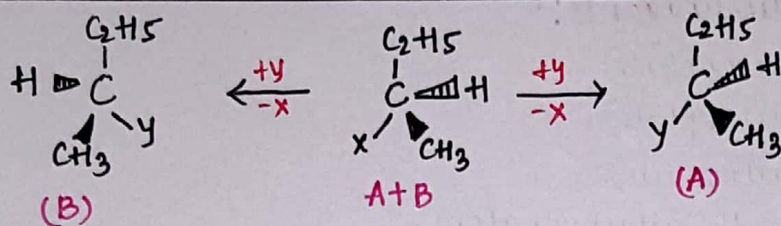 C2H5
H C
CH3 y
(B)
+y
-x
C2H5
C H
x CH3
A+B
+y
-x
C2H5
C H
y CH3
(A)